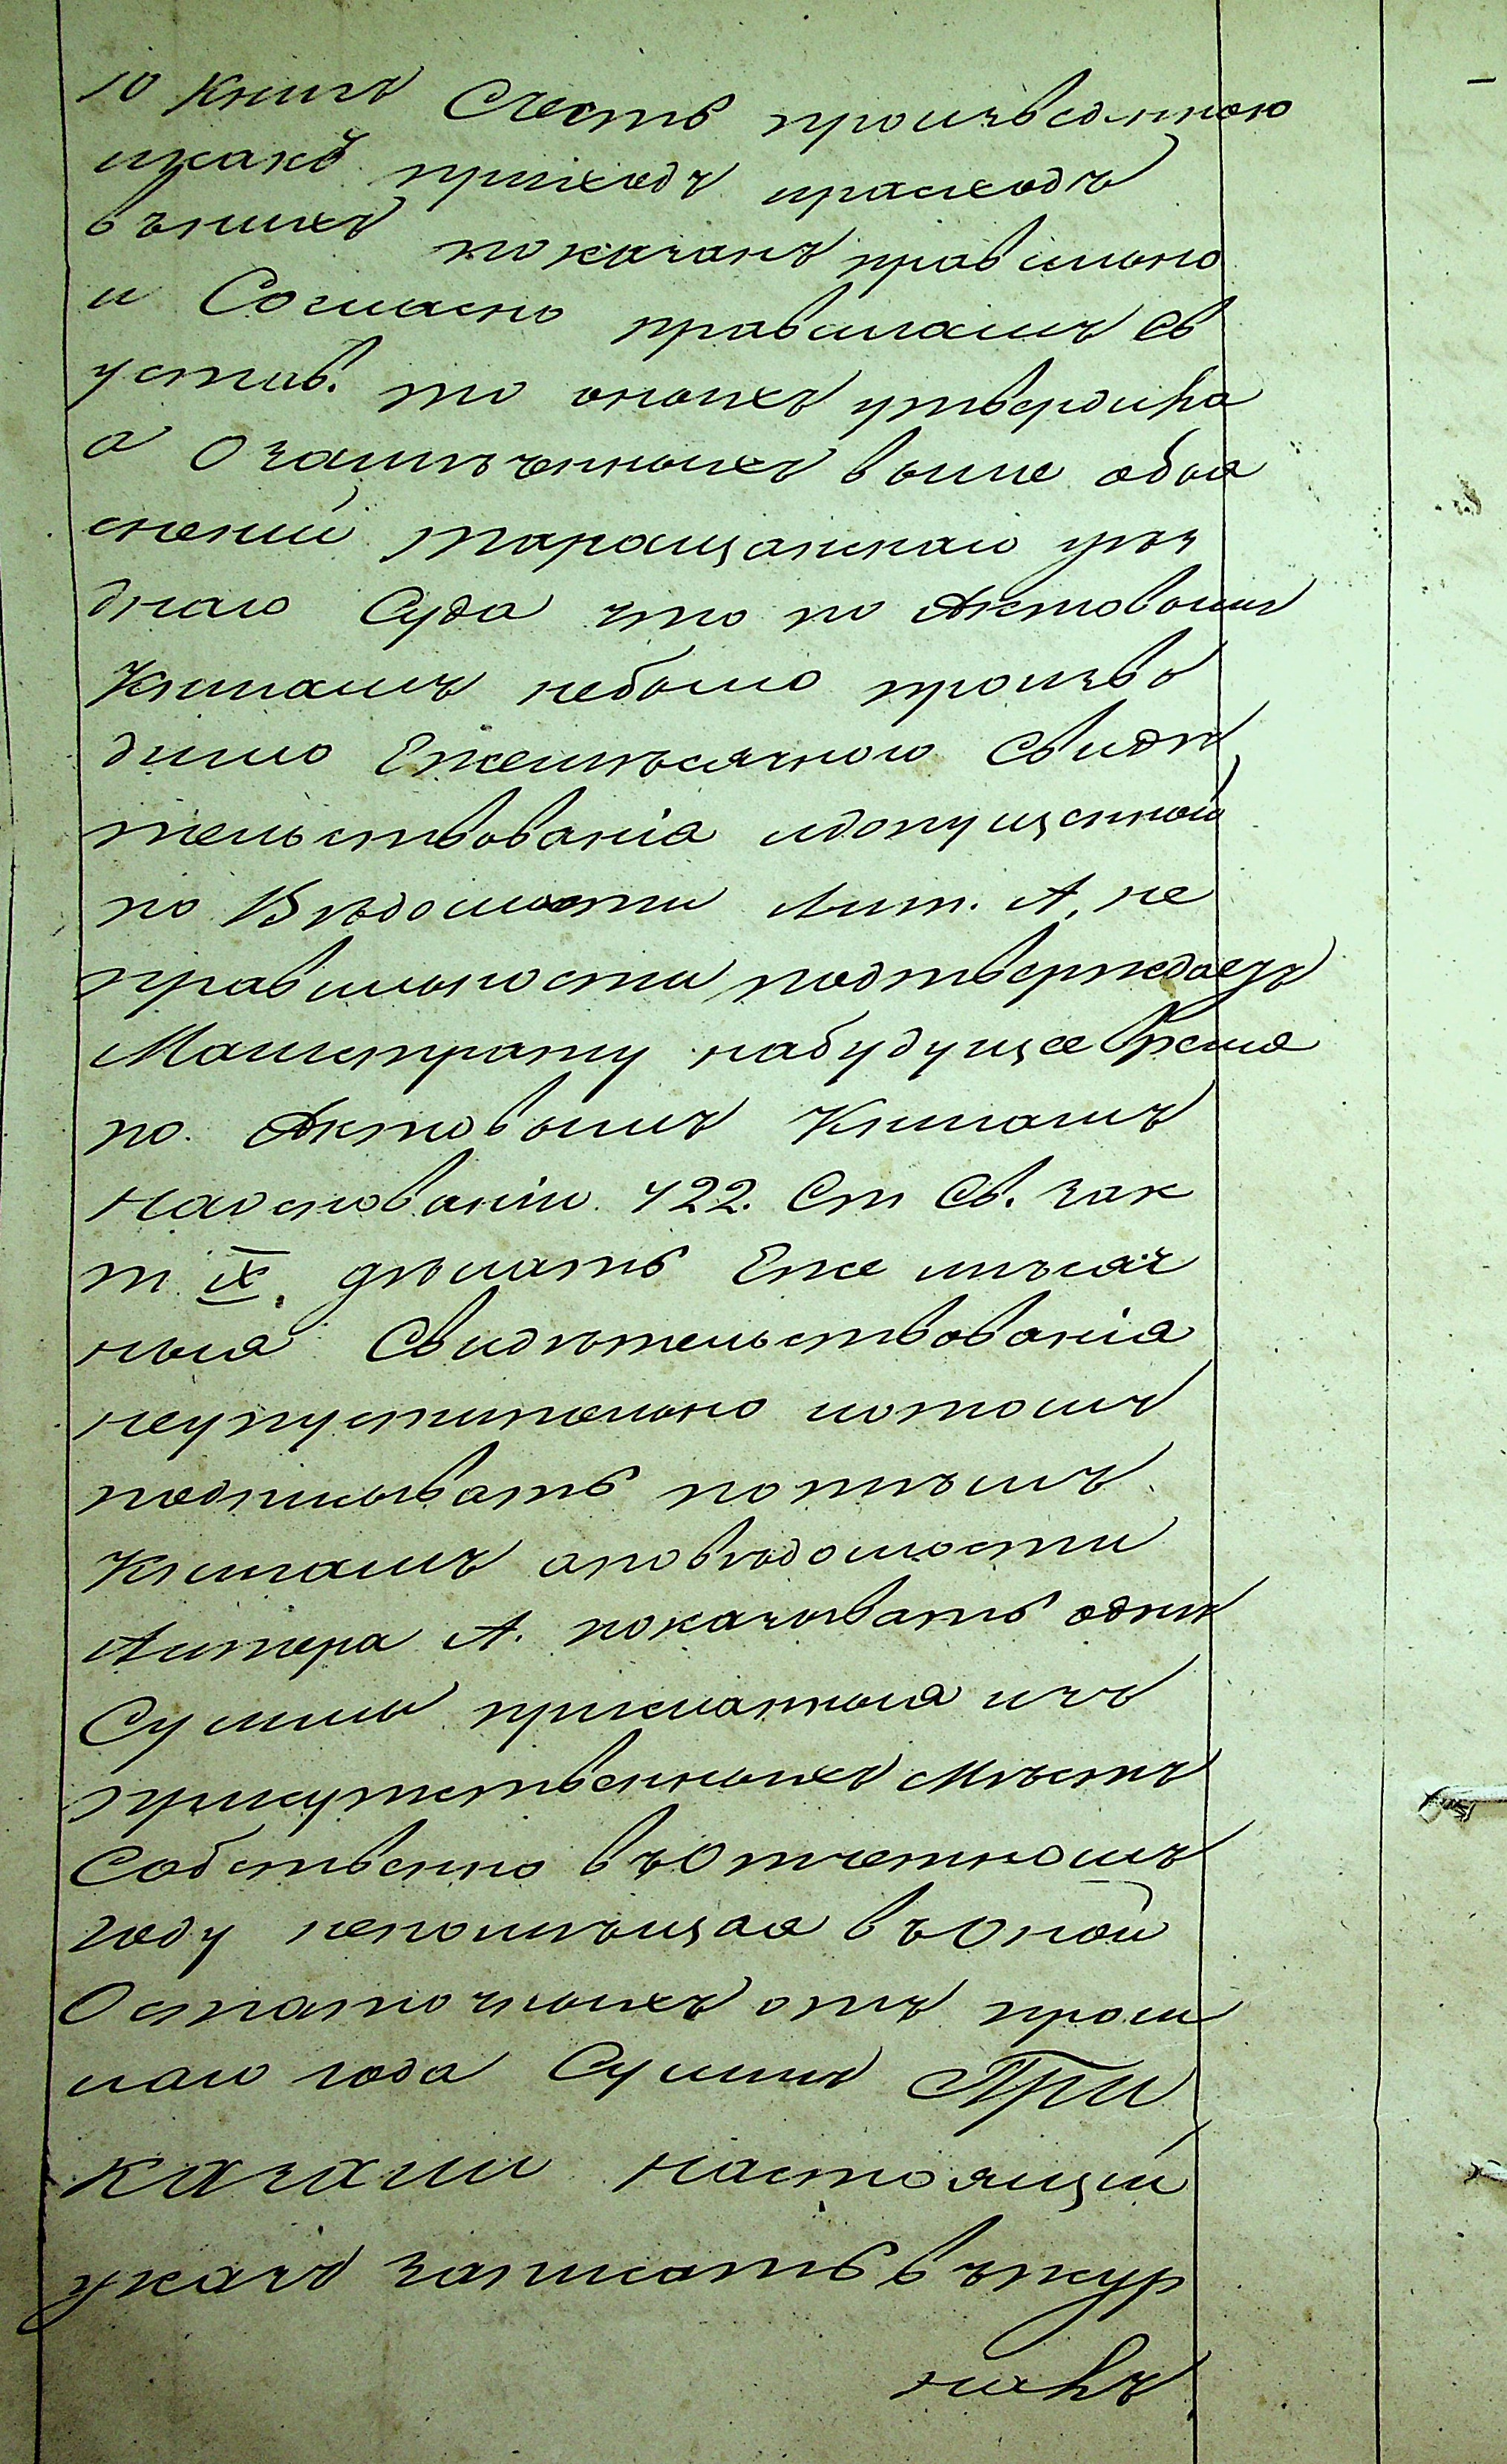 10 книгъ Счесть произведенною
икакъ приходъ ирасходъ
вънихъ показанъ правильно
и Согласно правиламъ Св
устав. то оныхъ утвердила
а Озамѣченныхъ выше объя
снений Таращанскаго уѣз
днаго Суда что по Актовымъ
Книгамъ небыло произво
димо Ежемѣсячного Свидѣ
тельствованія идопущенной
по Вѣдомости Лит. А, не
правильности подтверждаетъ
Магистрату набудущее Время
по. Актовымъ Книгамъ
наоснованіи 422. Ст Св. зак
т. IX. дѣлать Еже мѣсяч
ныя Свидѣтельствованія
неупустительно иотомъ
подписывать потѣмъ
Книгамъ аповѣдомости
Литера А. показывать однѣ
Суммы присланныя изъ
присутственныхъ Мѣстъ
Собственно въОтчетномъ
году непомѣщая въОной
Остаточныхъ отъ прош
лаго года Суммъ При
казали настоящій
указъ записать въжур
налъ